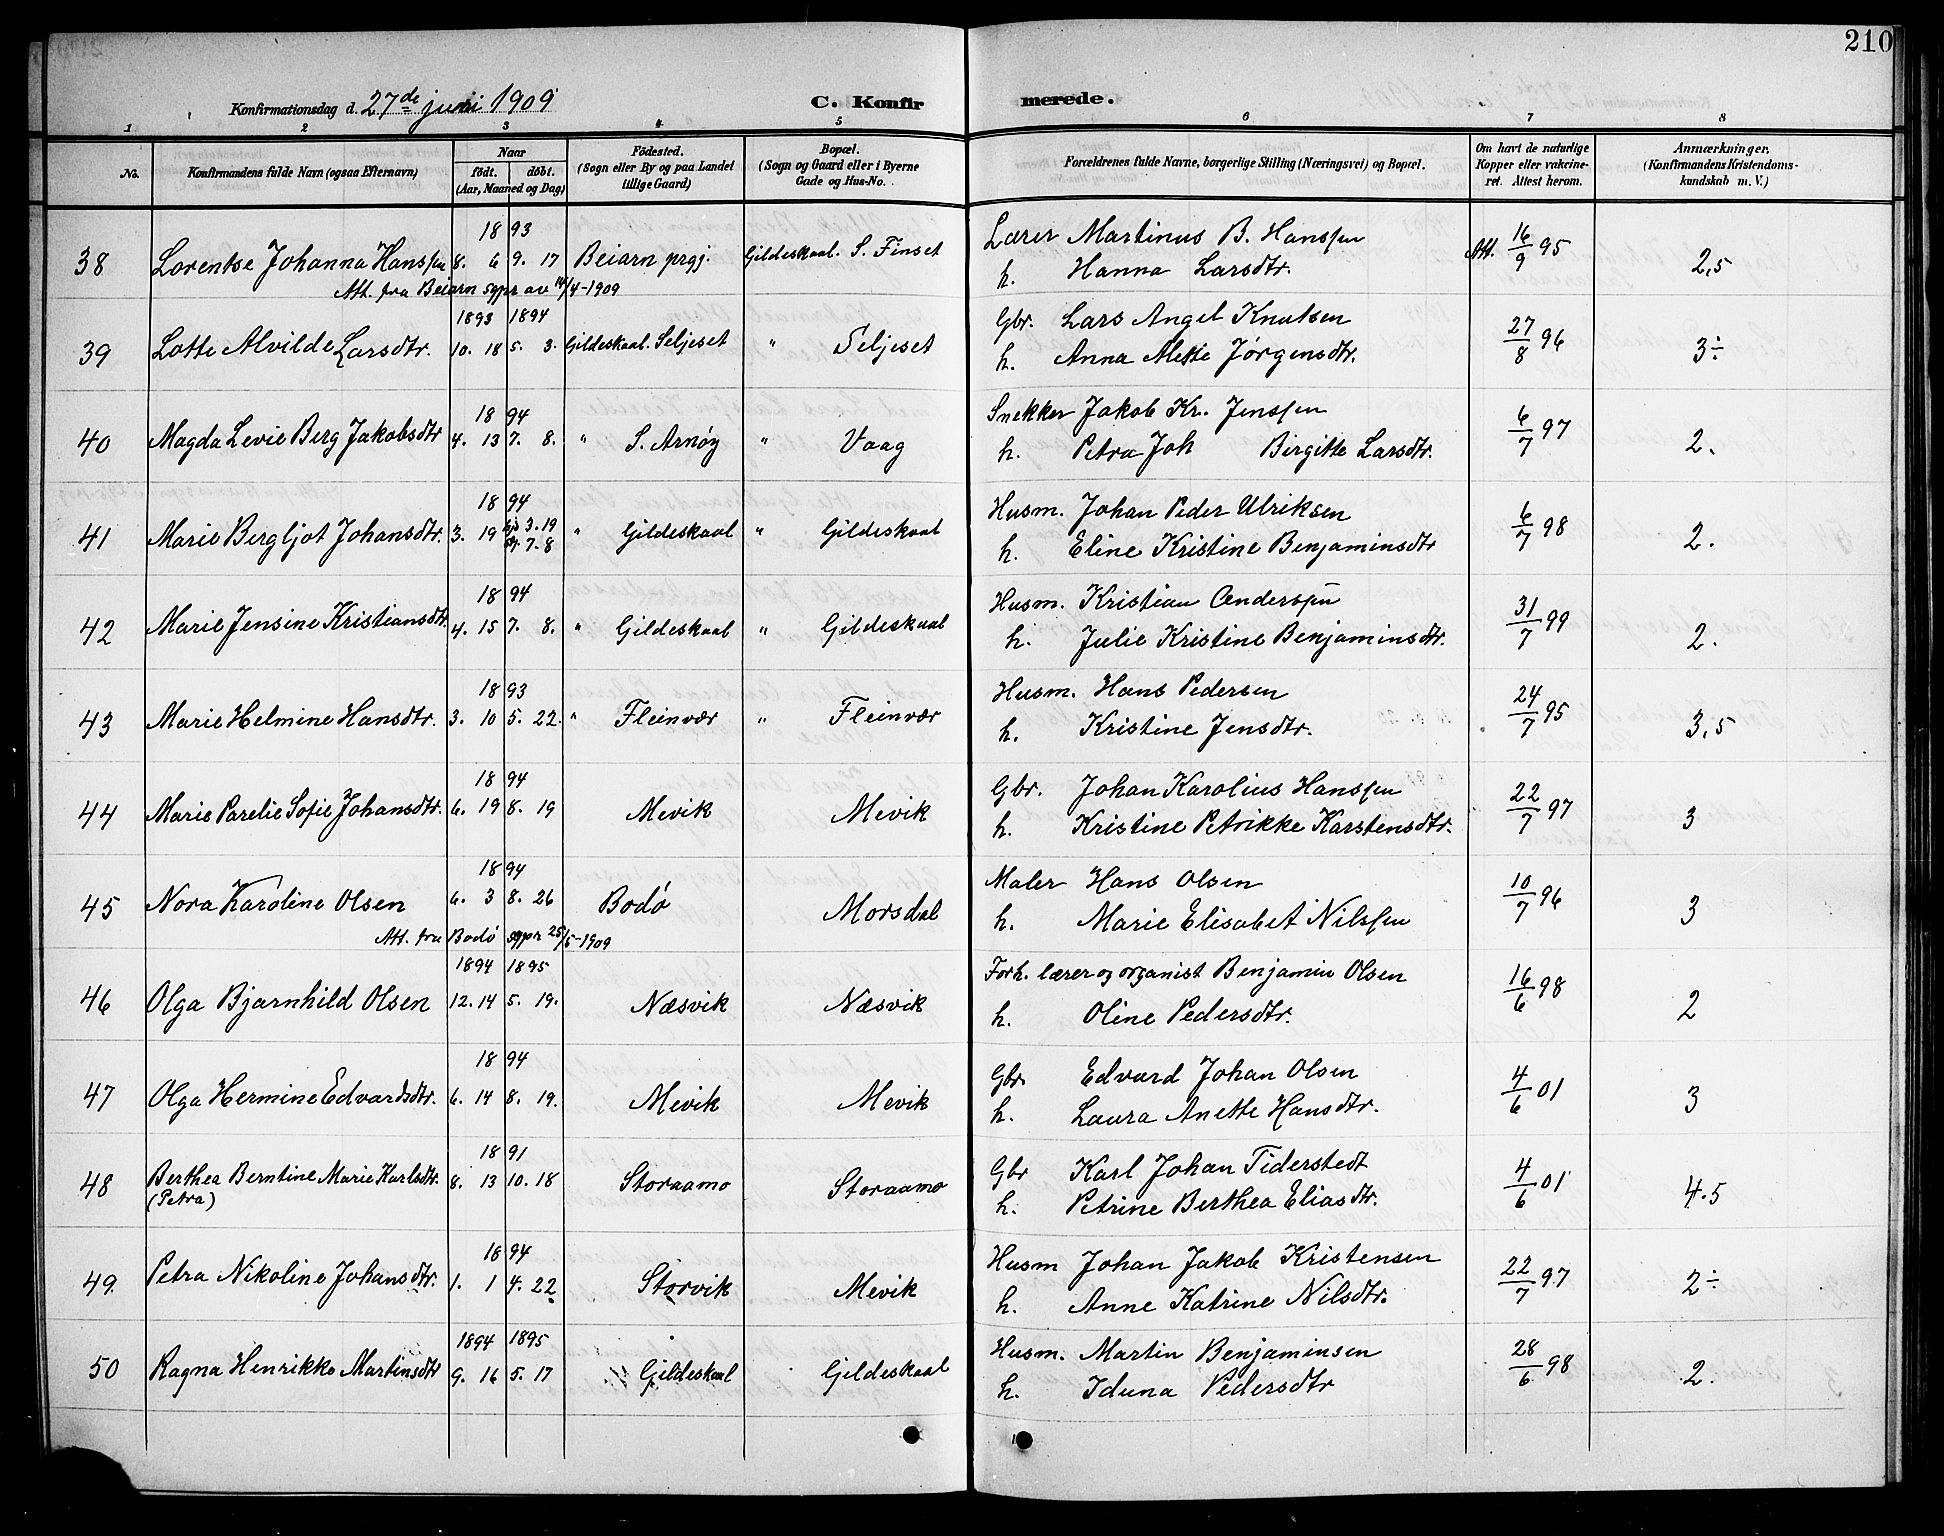 210
Konfirmationsdag d. 27de juni 1909 C. Konfirmerede.
1 2 3 4 5 6 7 8
No. Konfirmandens fulde Navn (ogsaa Efternavn) Naar födt. döbt. (Aar, Maaned og Dag) Födested. (Sogn eller By og paa Landet tillige Gaard) Bopæl. (Sogn og Gaard eller i Byerne Gade og Hus-No. Forældrenes fulde Navne, borgerlige Stilling (Næringsvei) og Bopæl. Om havt de naturlige Kopper eller vakcineret. Attest herom. Anmærkninger. (Konfirmandens Kristendomskundskab m. V.)
1893
38 Lorentse Johanna Hanssen 8. 6 9. 17 Beiarn prgj. Gildeskaal. S. Finset Lærer Martinus B. Hanssen Att. 16/9 95 2,5
h. Hanna Larsdtr.
Att. fra Beiarn sgpr av 14/4-1909
1893 1894
39 Lotte Alvilde Larsdtr. 10. 18 5. 3. Gildeskaal. Seljeset " Seljeset Gbr. Lars Angel Knutsen 27/8 96 3÷
h. Anna Mette Jørgensdtr.
1894
40 Magda Levie Berg Jakobsdtr 4. 13 7. 8. " S. Arnøy " Vaag Snekker Jakob Kr. Jenssen 6/7 97 2.
h. Petra Joh Birgitte Larsdtr.
1894
41 Marie Bergljot Johansdtr. 3. 19 3.19 7-8 " Gildeskaal " Gildeskaal Husm. Johan Peder Ulriksen 6/7 98 2.
h. Eline Kristine Benjaminsdtr
1894
42 Marie Jensine Kristiansdtr 4. 15 7. 8. " Gildeskaal " Gildeskaal Husm. Kristian Anderssen 31/7 99 2.
h. Julie Kristine Benjaminsdtr.
1893
43 Marie Helmine Hansdtr. 3. 10 5. 22. " Fleinvær " Fleinvær Husm. Hans Pedersen 24/7 95 3,5
h. Kristine Jensdtr.
1894
44 Marie Parelie Sofie Johansdtr. 6. 19 8. 19 Mevik Mevik Gbr. Johan Karolius Hanssen 22/7 97 3
h. Kristine Petrikke Karstensdtr.
1894
45 Nora Karoline Olsen 6. 3 8. 26 Bodø Morsdal Maler Hans Olsen 10/7 96 3
h. Marie Elisabet Nilssen
Att. fra Bodø sgpr 25/5-1909
1894 1895
46 Olga Bjarnhild Olsen 12. 14 5. 19. Næsvik Næsvik Forh. lærer og organist Benjamin Olsen 16/6 98 2
h. Oline Pedersdtr.
1894
47 Olga Hermine Edvardsdtr. 6. 14 8. 19. Mevik Mevik Gbr. Edvard Johan Olsen 4/6 01 3
h. Laura Anette Hansdtr.
1891
48 Berthea Berntine Marie Karlsdtr. 8. 13 10. 18 Storaamo Storaamo Gbr Karl Johan Tiderstedt 4/6 01 4.5
(Petra) h. Petrine Berthea Eliasdtr.
1894
49. Petra Nikoline Johansdtr. 1. 1 4. 22 Storvik Mevik Husm Johan Jakob Kristensen 22/7 97 2÷
h. Anne Katrine Nilsdtr.
1894 1895
50 Ragna Henrikke Martinsdtr 9. 16 5. 17 Gildeskaal Gildeskaal Husm. Martin Benjaminsen 28/6 98 2.
h. Iduna Pedersdtr